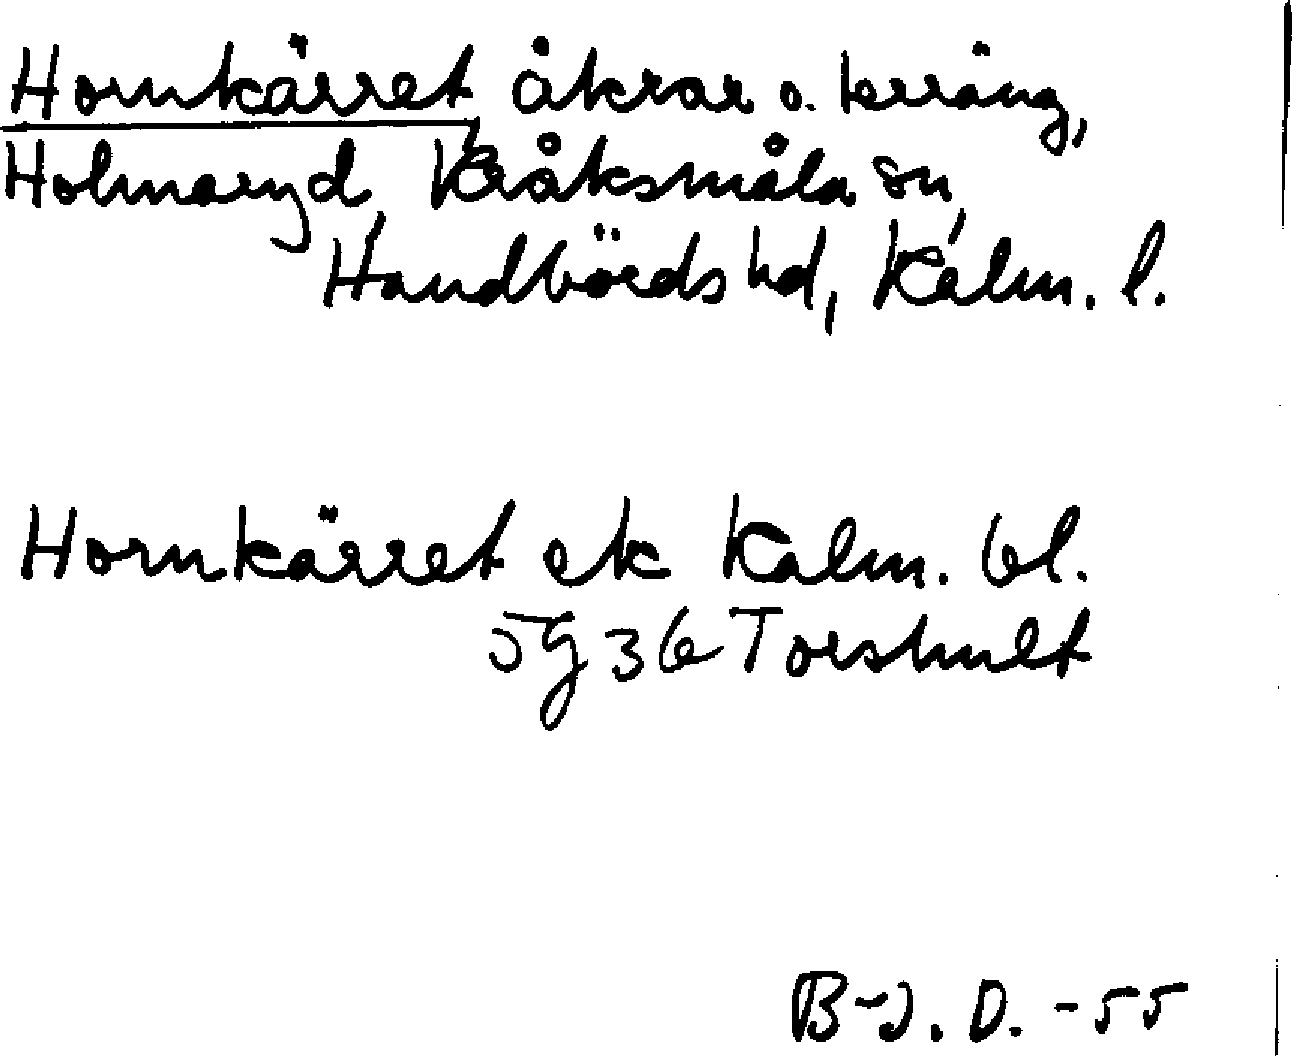 Hornkärret, åkrar o. terräng,
Holmaryd, Kråksmåla sn,
Handbörds hd, Kalm. l.
Hornkärret ek Kalm. bl.
5g 36 Torshult
B-J. D. -55